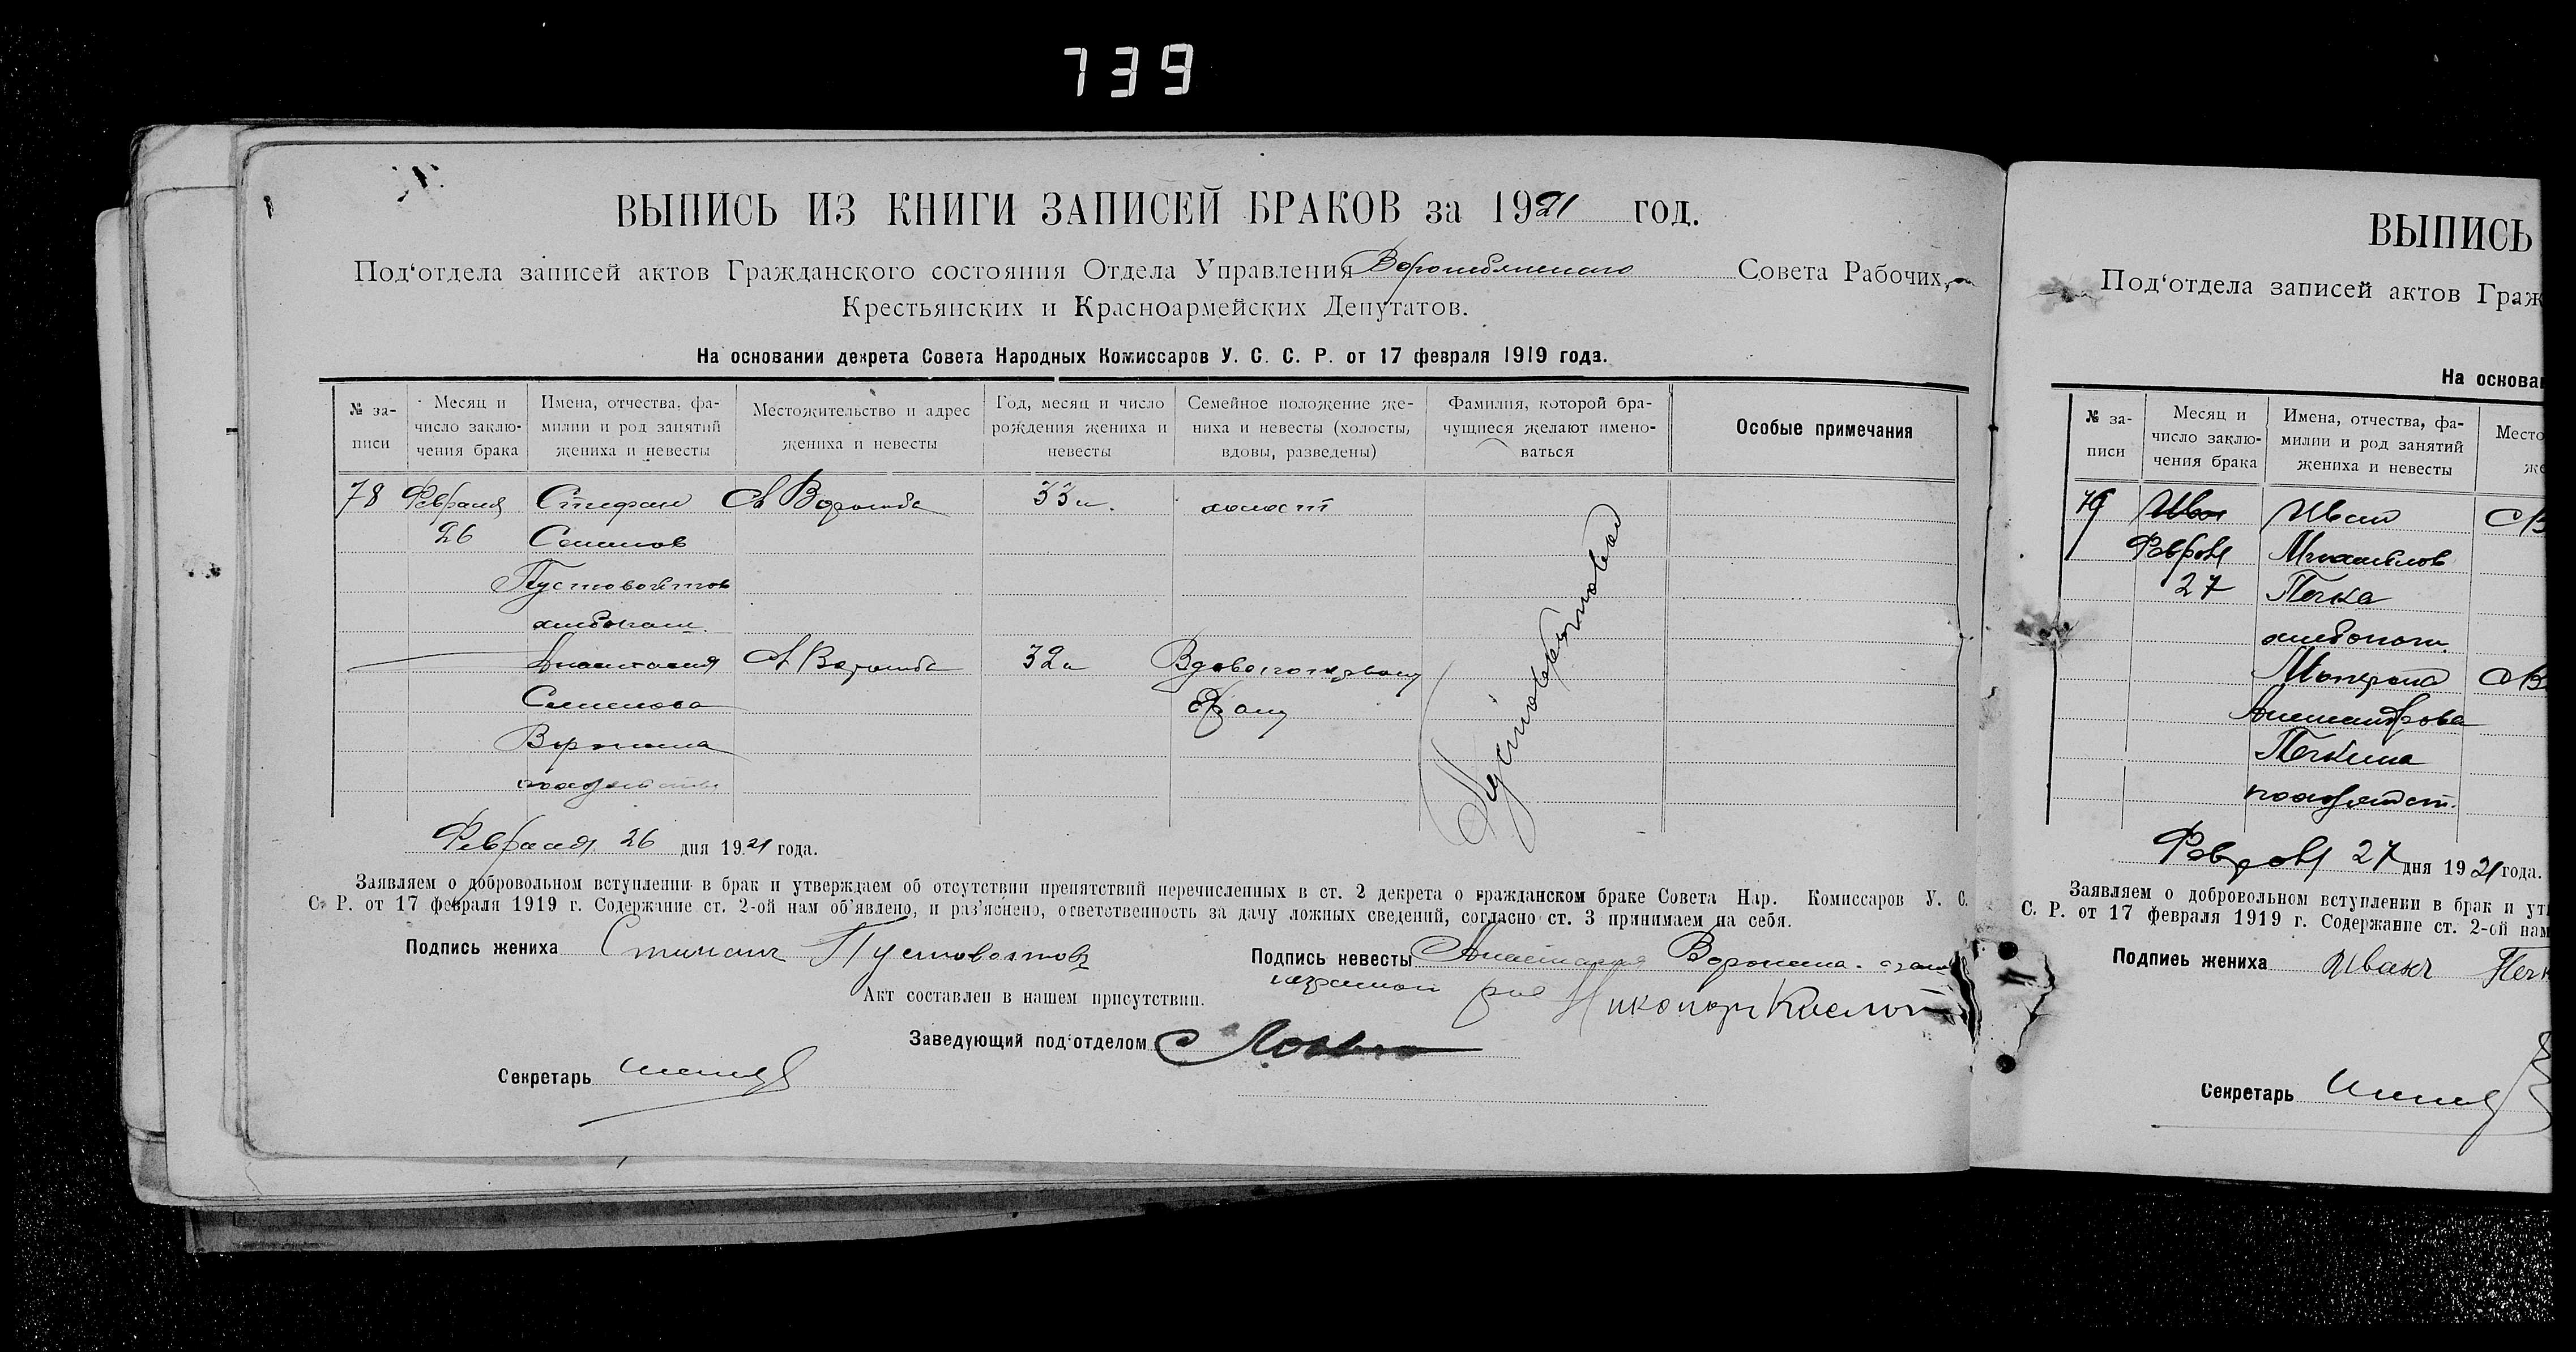 739
ВЫПИСЬ ИЗ КНИГИ ЗАПИСЕЙ БРАКОВ за 1921 год.
Под‘отдела записей актов Гражданского состояния Отдела Управления Ворожбянского Совета Рабочих,
Крестьянских и Красноармейских Депутатов.
На основании декрета Совета Народных Комиссаров У. С. С. Р. от 17 февраля 1919 года.
№ за-
писи
Месяц и
число заклю-
чения брака
Имена, отчества, фа-
милии и род занятий
жениха и невесты
Местожительство и адрес
жениха и невесты
Год, месяц и число
рождения жениха и
невесты
Семейное положение же-
ниха и невесты (холосты,
вдовы, разведены)
Фамилия, которой бра-
чущиеся желают имено-
ваться
Особые примечания
78 Февраля Стефан С Ворожба 33 л. холост
26 Семенов
Пустовойтов
хлебопаш.
Анастасия С Ворожба 32 л
Семенова
Воронина
Пустовойтовы
Февраля 26 дня 1921 года.
Заявляем о добровольном вступлении в брак и утверждаем об отсутствии препятствий перечисленных в ст. 2 декрета о гражданском браке Совета Нар. Комиссаров У. С.
С. Р. от 17 февраля 1919 г. Содержание ст. 2-ой нам об’явлено, и раз’яснено, ответственность за дачу ложных сведений, согласно ст. 3 принимаем на себя.
Подпись жениха Пустовойтовъ
Подпись невесты Анастасия Воронина
Акт составлен в нашем присутствии.
Заведующий под‘отделом
Секретарь
ВЫПИСЬ
Под‘отдела записей актов Граж
На основан
№ за-
писи
Месяц и
число заклю-
чения брака
Имена, отчества, фа-
милии и род занятий
жениха и невесты
Место
же
79 Иван Иван С В
Февраля Михайлов
27 Печка
хлебопаш.
С В
Александрова
Печкина
Февраля 27 дня 1921 года.
Заявляем о добровольном вступлении в брак и ут
С. Р. от 17 февраля 1919 г. Содержание ст. 2-ой нам
Подпись жениха Иванъ Печк
Секретарь